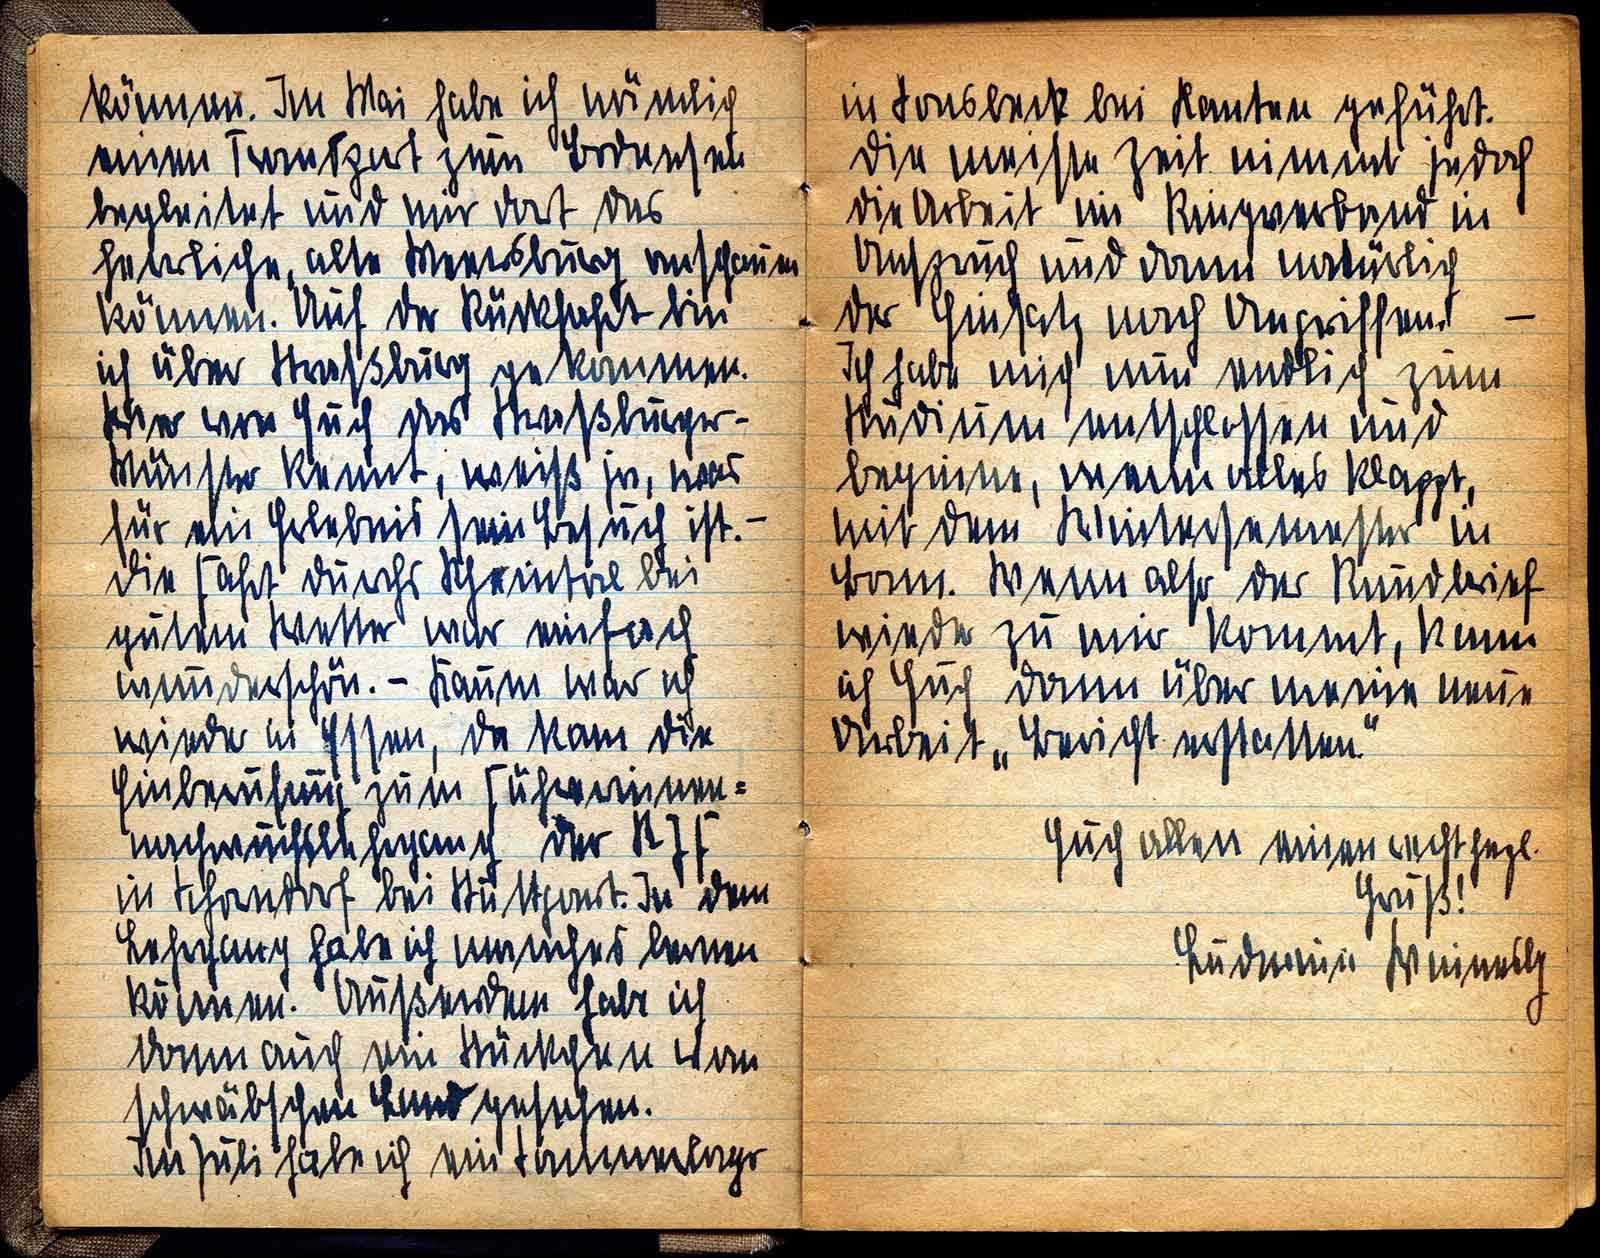 können. Im Mai habe ich nämlich
einen Transport zum Bodensee
begleitet und mir dort das
herrliche, alte Meersburg anschauen
können. Auf der Rückfahrt bin
ich über Straßburg gekommen.
Wer von Euch das Straßburger-
Münster kennt, weiß ja, was
für ein Erlebnis sein Besuch ist. –
Die Fahrt durchs Rheintal bei
gutem Wetter war einfach
wunderschön. – Kaum war ich
wieder in Essen, da kam die
Einberufung zum Führerinnen=
nachwuchslehrgang der RJF
in Schorndorf bei Stuttgart. In dem
Lehrgang habe ich manches lernen
können. Außerdem habe ich
dann auch ein Stückchen vom
schwäbschen Land gesehen.
Im Juli habe ich ein Sommerlager
in Sonsbeck bei Xanten geführt.
Die meiste Zeit nimmt jedoch
die Arbeit im Ringverband in
Anspruch und dann natürlich
der Einsatz nach Angriffen! –
Ich habe mich nun endlich zum
Studium entschlossen und
beginne, wenn alles klappt,
mit dem Wintersemester in
Bonn. Wenn also der Rundbrief
wieder zu mir kommt, kann
ich Euch dann über meine neue
Arbeit „Bericht erstatten."
Euch allen einen recht herzl.
Gruß!